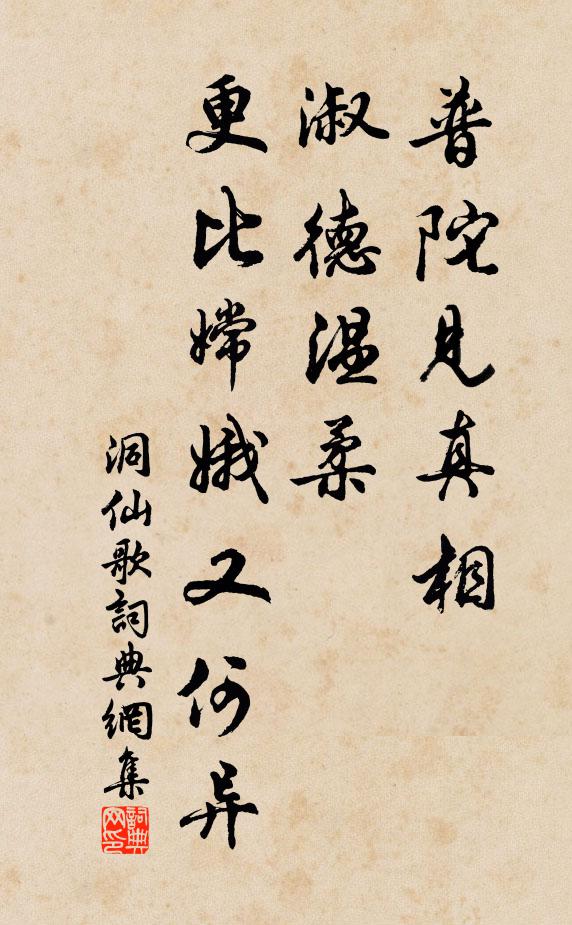 普陀見真相
淑德温柔
更比嫦娥又何异
洞仙歌詞典網集
詞典网印